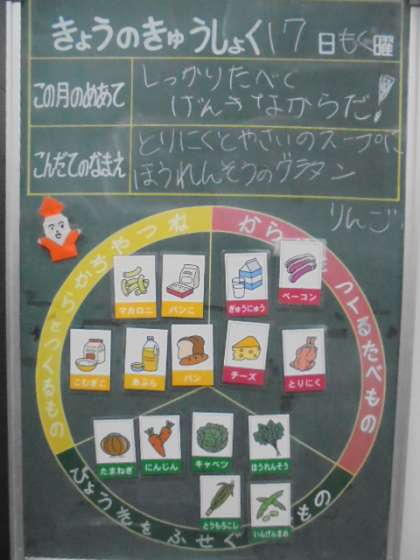 きょうのきゅうしょく 17日 もく曜
この月のめあて
しっかりたべて
げんきなからだ!
こんだてのなまえ
とりにくとやさいのスープに
ほうれんそうのグラタン
りんご
ちからやねつ
をつくるもの
からだをつくるたべもの
マカロニ
パンこ
ぎゅうにゅう
ベーコン
こむぎこ
あぶら
パン
チーズ
とりにく
たまねぎ
にんじん
キャベツ
ほうれんそう
とうもろこし
いんげんまめ
びょうきをふせぐもの